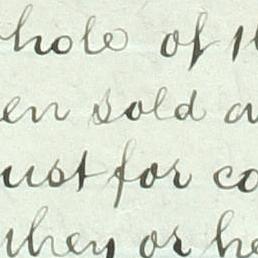 whole of th
en sold a
ust for co
they or he